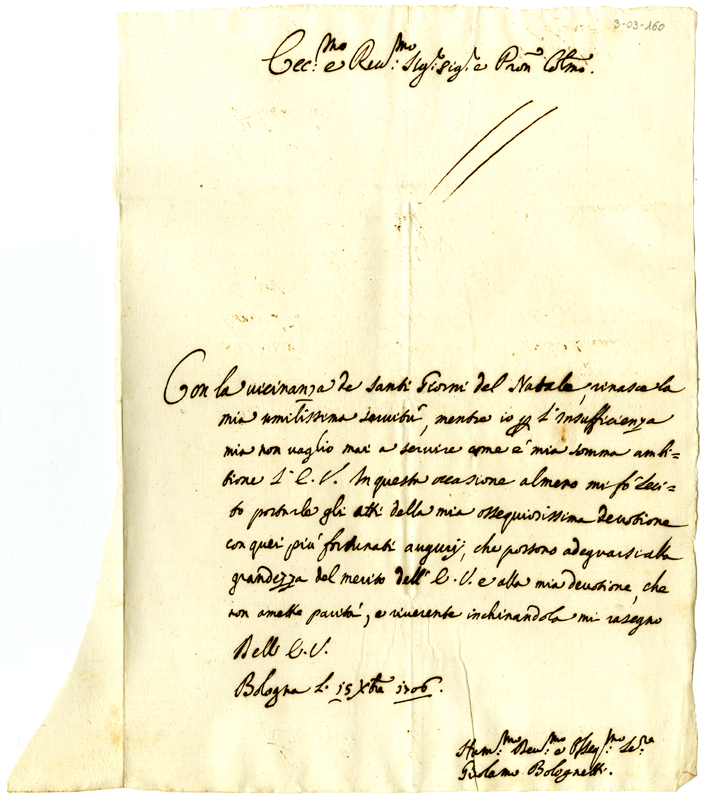 3-03-160
Ecc:mo e Reu:mo Sig:r Sig:r e Pron Colmo.
Con la uicinanza de Santi Giorni del Natale, rinasce la
mia umilissima seruitù, mentre io p l'insufficienza
mia non uaglio mai a seruire come è mia somma ambi=
tione L' E. V. In questa occasione almeno mi fò leci=
to portarle gli atti della mia ossequiosissima deuotione
con quei più fortunati augurij, che possono adeguarsi alla
grandezza del merito dell' E. V. e alla mia deuotione, che
non amette parità, e riuerente inchinandola mi rasegno
Dell E. V.
Bologna L. 15 Xbre 1706.
Hum:mo Deu:mo e Osseq:mo Se:re
Girolamo Bolognetti.